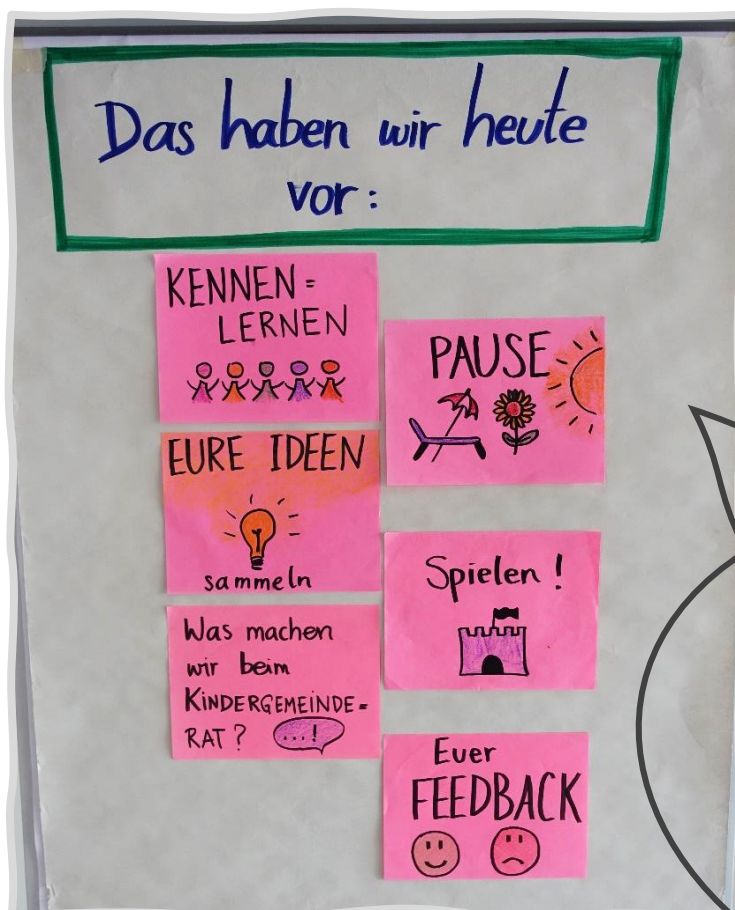 Das haben wir heute
vor:
KENNEN=
LERNEN
EURE IDEEN
sammeln
Was machen
wir beim
KINDERGEMEINDE=
RAT?
...!
PAUSE
Spielen!
Euer
FEEDBACK